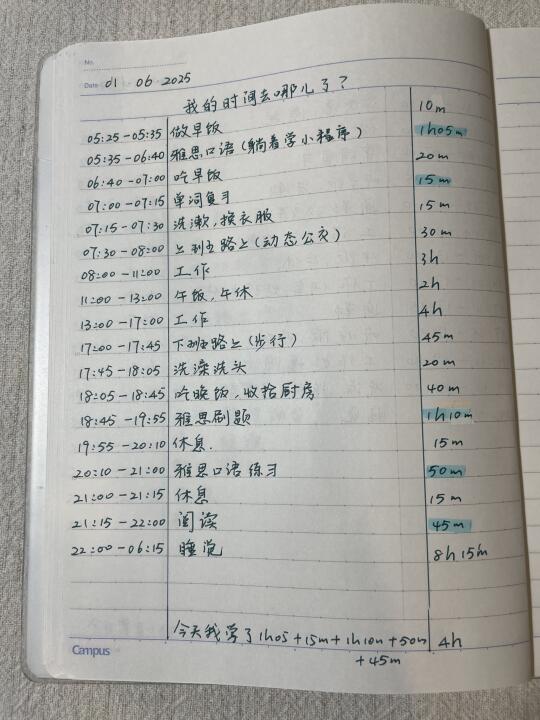 No.
Date 01 · 06 · 2025
我的时间去哪儿了?
05:25-05:35 做早饭 10m
05:35-06:40 雅思口语(躺着学小程序) 1h05m
06:40-07:00 吃早饭 20m
07:00-07:15 单词复习 15m
07:15-07:30 洗漱,换衣服 15m
07:30-08:00 上班路上(动态公交) 30m
08:00-11:00 工作 3h
11:00-13:00 午饭,午休 2h
13:00-17:00 工作 4h
17:00-17:45 下班路上(步行) 45m
17:45-18:05 洗澡洗头 20m
18:05-18:45 吃晚饭,收拾厨房 40m
18:45-19:55 雅思刷题 1h10m
19:55-20:10 休息. 15m
20:10-21:00 雅思口语练习 50m
21:00-21:15 休息 15m
21:15-22:00 阅读 45m
22:00-06:15 睡觉 8h15m
今天我学了1h05+15m+1h10m+50m 4h
+45m
Campus